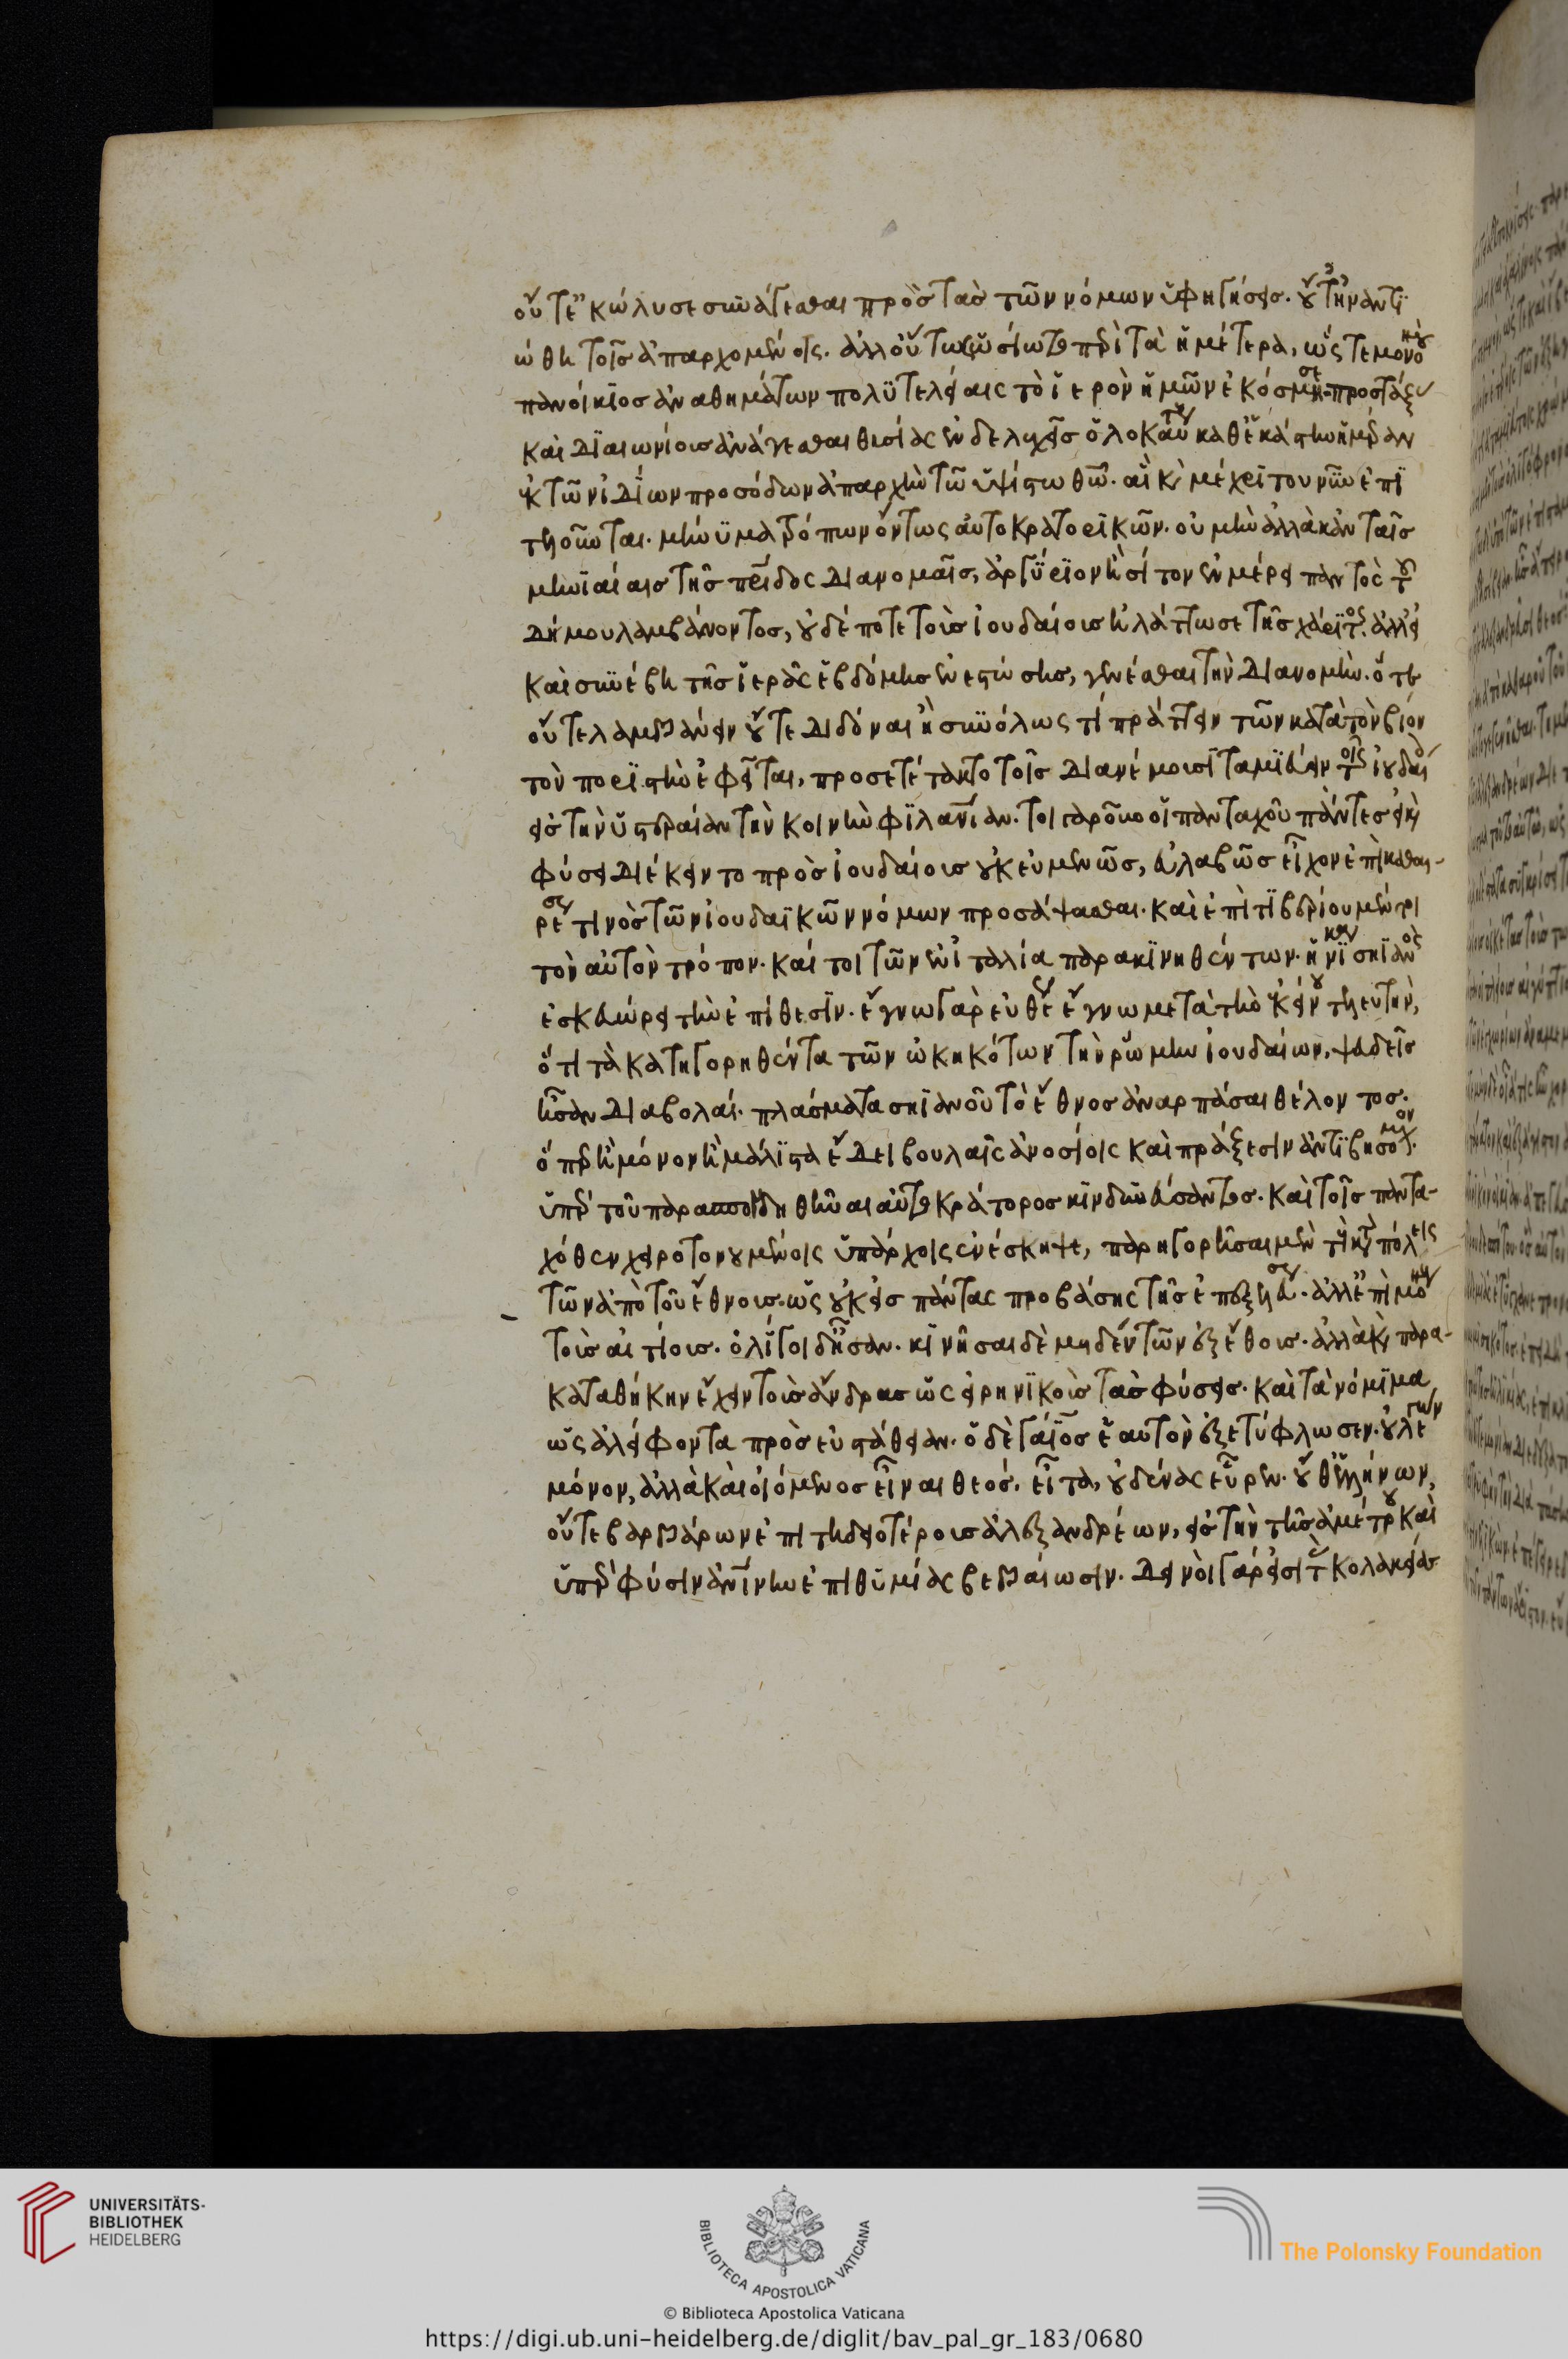 οὔτε ἐκώλυσε συνάγεσθαι πρὸς τὰς τῶν νόμων ὑφηγήσεις. οὔτε ἠναντι
ώθη τοῖς ἀπαρχομένοις. ἀλλ' οὕτως ὡσίωτο περὶ τὰ ἡμέτερα, ὥστε μονονοὺ
πανοίκιος ἀναθημάτων πολυτελείαις τὸ ἱερὸν ἡμῶν ἐκόσμησε. προστάξας
καὶ διαιωνίους ἀνάγεσθαι θυσίας ἐνδελεχεῖς ὁλοκαύτους καθ' ἑκάστην ἡμέραν
ἐκ τῶν ἰδίων προσόδων ἀπαρχὴν τῶ ὑψίστω θεῶ. αἳ καὶ μέχρι τοῦ νῦν ἐπι
τελοῦνται. μήνυμα τρόπων ὄντως αὐτοκρατορικῶν. οὐ μὴν ἀλλὰ κἀν ταῖς
μηνιαίαις τῆς πατρίδος διανομαῖς, ἀργύριον ἢ σῖτον ἐν μέρει παντὸς τοῦ
δήμου λαμβάνοντος, οὐδέποτε τοὺς ἰουδαίους ἠλάττωσε τῆς χάριτος. ἀλλ' εἰ
καὶ συνέβη τῆς ἱερᾶς ἑβδόμης ἐνεστώσης, γενέσθαι τὴν διανομὴν. ὅτε
οὔτε λαμβάνειν οὔτε διδόναι ἢ συνόλως τί πράττειν τῶν κατὰ τὸν βίον
τὸν ποριστὴν ἐφεῖται, προσετέτακτο τοῖς διανέμουσι ταμιεύειν τοῖς ἰουδαί
εἰς τὴν ὑστεραίαν τὴν κοινὴν φιλανθρωπίαν. τοιγαροῦν οἱ πανταχοῦ πάντες εἰ καὶ
φύσει διέκειντο πρὸς ἰουδαίους οὐκ εὐμενῶς, εὐλαβῶς εἶχον ἐπὶ καθαι-
ρέσει τινὸς τῶν ἰουδαϊκῶν νόμων προσάψασθαι. καὶ ἐπὶ τιβερίου μέν τοι
τὸν αὐτὸν τρόπον. καί τοι τῶν ἐν ἰταλία παρακινηθέντων. ἡνίκα σηϊανὸς
ἐσκευώρει τὴν ἐπίθεσιν. ἔγνω γὰρ εὐθέως ἔγνω μετὰ τὴν ἐκείνου τελευτὴν,
ὅτι τὰ κατηγορηθέντα τῶν ὠκηκότων τὴν ῥώμην ἰουδαίων, ψευδεῖς
ἦσαν διαβολαί. πλάσματα σηϊανοῦ τὸ ἔθνος ἀναρπάσαι θέλοντος.
ὅπερ ἢ μόνον ἢ μάλιστα ἤδει βουλαῖς ἀνοσίοις καὶ πράξεσιν ἀντιβησόμενον.
ὑπὲρ τοῦ παρασπονδηθῆναι αὐτοκράτορος κινδυνεύσαντος. καὶ τοῖς παντα-
χόθεν χειροτονουμένοις ὑπάρχοις ἐνέσκηψε, παρηγορῆσαι μὲν τοὺς κατὰ πόλεις
τῶν ἀπὸ τοῦ ἔθνους. ὡς οὐκ εἰς πάντας προβάσης τῆς ἐπεξελεύσεως. ἀλλ' ἐπὶ μόνους
τοὺς αἰτίους. ὀλίγοι δ' ἦσαν. κινῆσαι δὲ μηδὲν τῶν ἐξ ἔθους. ἀλλὰ καὶ παρα-
καταθήκην ἔχειν τοὺς ἄνδρας ὡς εἰρηνικοὺς τὰς φύσεις. καὶ τὰ νόμιμα
ὡς ἀλείφοντα πρὸς εὐστάθειαν. ὁ δὲ γάϊος ἑαυτὸν ἐξετύφλωσεν. οὐ λέγων
μόνον, ἀλλὰ καὶ οἰόμενος εἶναι θεός. εἶτα, οὐδένας εὗρεν. οὔθ' ἑλλήνων,
οὔτε βαρβάρων ἐπιτηδειοτέρους ἀλεξανδρέων, εἰς τὴν τῆς ἀμέτρου καὶ
ὑπὲρ φύσιν ἀνθρωπίνην ἐπιθυμίας βεβαίωσιν. δεινοὶ γάρ εἰσι τὰς κολακείας
UNIVERSITÄTS-
BIBLIOTHEK
HEIDELBERG
BIBLIOTECA APOSTOLICA VATICANA
The Polonsky Foundation
© Biblioteca Apostolica Vaticana
https://digi.ub.uni-heidelberg.de/diglit/bav_pal_gr_183/0680